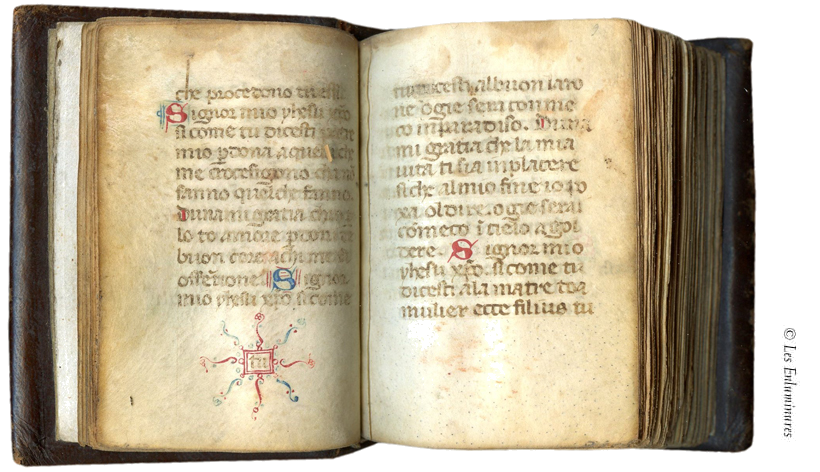 che procedono tu esse
Signor mio yhesu xpo
si come tu dicesti
mio pdona a quelli che
me crocesigono cha no
sanno quel che fanno.
Duna mi gratia chio
lo to amore pdon
buon core achi me
offensione. Signor
mio yhesu xpo. si come
tu
tu dicesti al buon laro
ne ogie serai con me
co in paradiso. Duna
mi gratia che la mia
vita ti sia in placere
si che al mio fine io
oldire. ogie serai
comeco i cielo a gol
dere. Signor mio
yhesu xpo. si come tu
dicesti a la matre toa
mulier ecce filius tu
© Les Enluminures